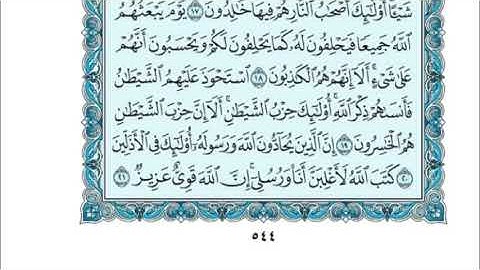 شَيْـًٔا ۚ أُو۟لَـٰٓئِكَ أَصْحَـٰبُ ٱلنَّارِ ۖ هُمْ فِيهَا خَـٰلِدُونَ ١٧ يَوْمَ يَبْعَثُهُمُ
ٱللَّهُ جَمِيعًا فَيَحْلِفُونَ لَهُۥ كَمَا يَحْلِفُونَ لَكُمْ ۖ وَيَحْسَبُونَ أَنَّهُمْ
عَلَىٰ شَىْءٍ ۚ أَلَآ إِنَّهُمْ هُمُ ٱلْكَـٰذِبُونَ ١٨ ٱسْتَحْوَذَ عَلَيْهِمُ ٱلشَّيْطَـٰنُ
فَأَنسَىٰهُمْ ذِكْرَ ٱللَّهِ ۚ أُو۟لَـٰٓئِكَ حِزْبُ ٱلشَّيْطَـٰنِ ۚ أَلَآ إِنَّ حِزْبَ ٱلشَّيْطَـٰنِ
هُمُ ٱلْخَـٰسِرُونَ ١٩ إِنَّ ٱلَّذِينَ يُحَآدُّونَ ٱللَّهَ وَرَسُولَهُۥٓ أُو۟لَـٰٓئِكَ فِى ٱلْأَذَلِّينَ
٢٠ كَتَبَ ٱللَّهُ لَأَغْلِبَنَّ أَنَا۠ وَرُسُلِىٓ ۚ إِنَّ ٱللَّهَ قَوِىٌّ عَزِيزٌ ٢١
٥٤٤